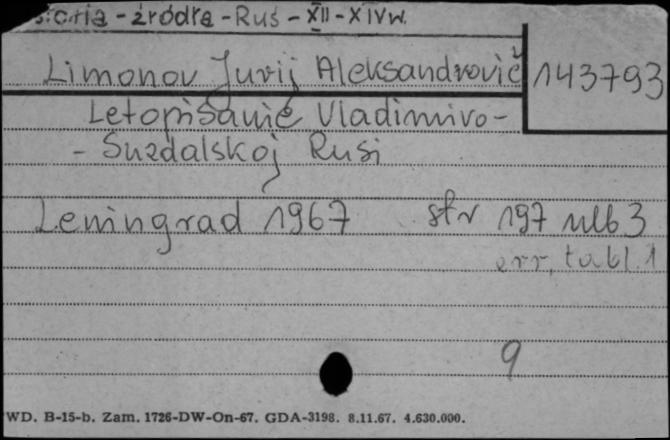 storia - źródła - Ruś - XII - XIV w.
Limonov Jurij Aleksandrovič 143793
Letopisanie Vladimiro-
- Suzdalskoj Rusi
Leningrad 1967 str 197 nlb 3
err, tabl. 1
9
WD. B-15-b. Zam. 1726-DW-On-67. GDA-3198. 8.11.67. 4.630.000.